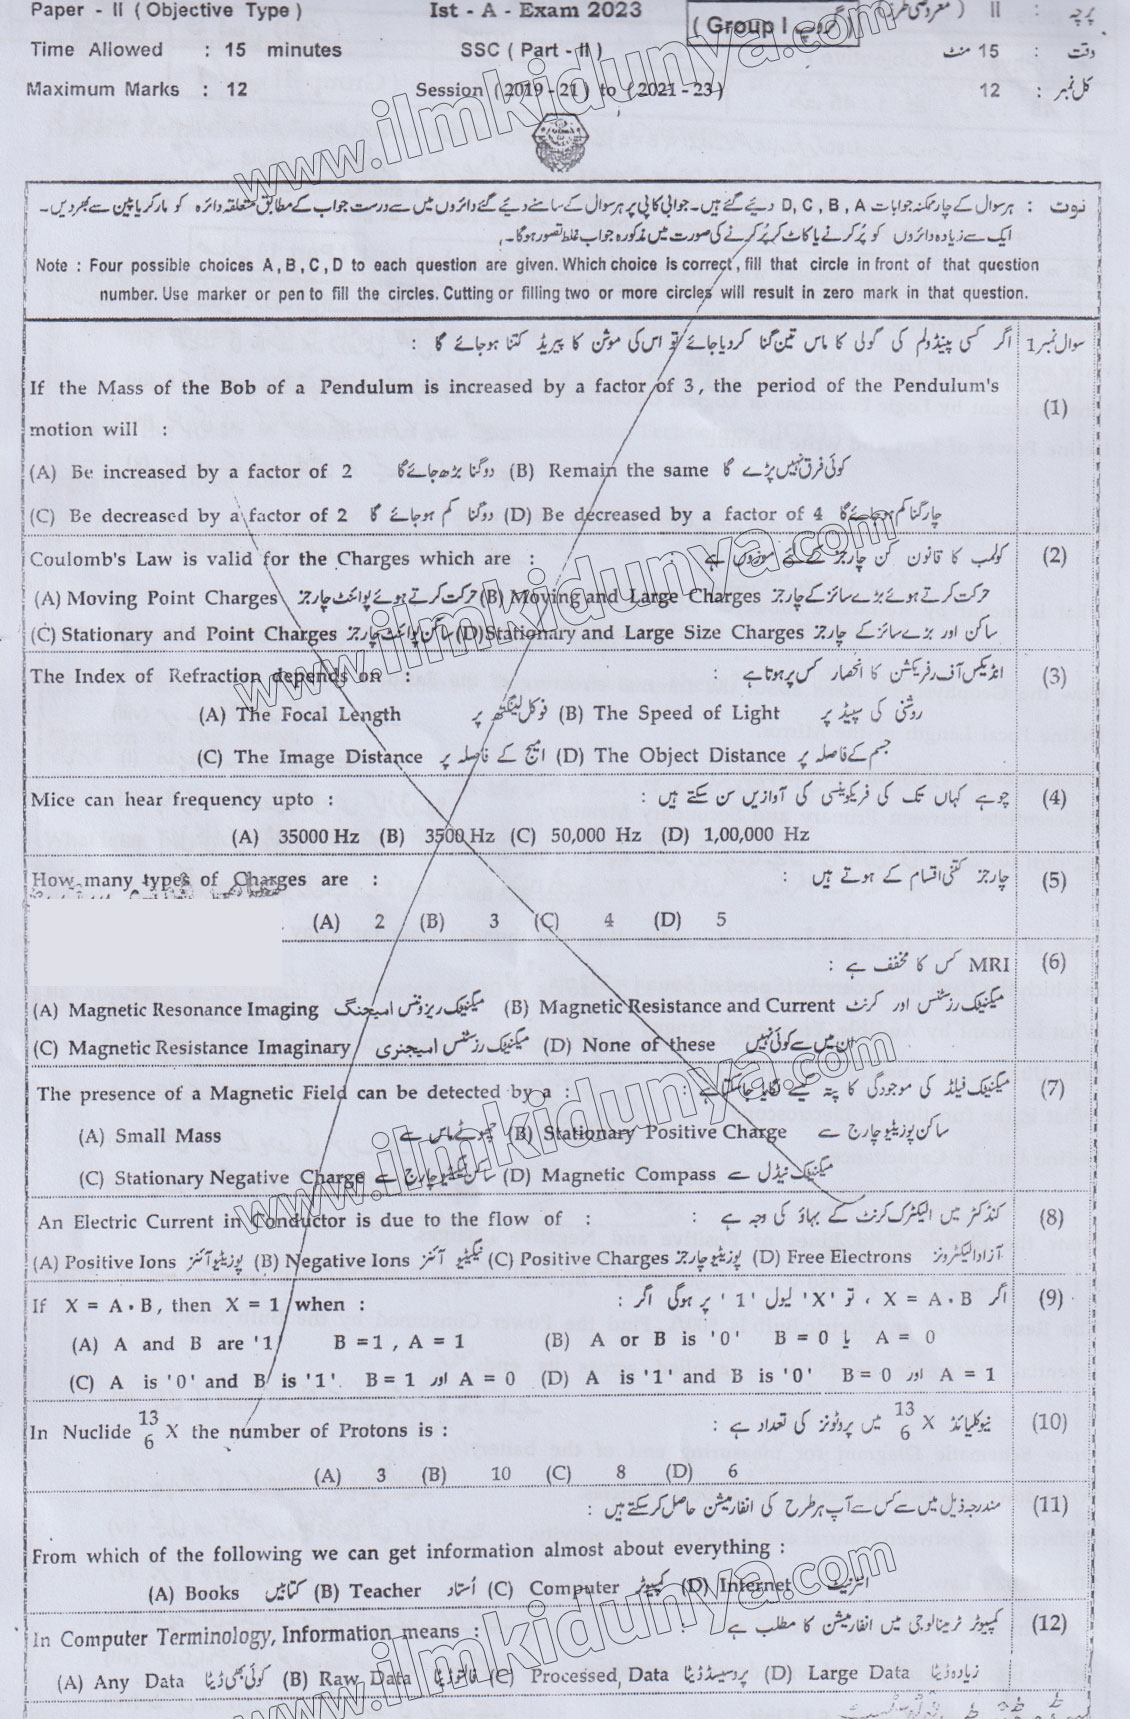 Paper - II ( Objective Type ) Ist - A - Exam 2023 ( Group I گروپ ) پرچہ : II ( معروضی طرز
Time Allowed : 15 minutes SSC ( Part - II ) وقت : 15 منٹ
Maximum Marks : 12 Session ( 2019 - 21 ) to ( 2021 - 23 ) کل نمبر : 12
نوٹ : ہر سوال کے چار ممکنہ جوابات D, C, B, A دیئے گئے ہیں۔ جوابی کاپی پر ہر سوال کے سامنے دیئے گئے دائروں میں سے درست جواب کے مطابق متعلقہ دائرہ کو مارکر یا پین سے بھر دیں۔
ایک سے زیادہ دائروں کو پُر کرنے یا کاٹ کر پُر کرنے کی صورت میں مذکورہ جواب غلط تصور ہوگا۔
Note : Four possible choices A, B, C, D to each question are given. Which choice is correct, fill that circle in front of that question
number. Use marker or pen to fill the circles. Cutting or filling two or more circles will result in zero mark in that question.
سوال نمبر 1 اگر کسی پینڈولم کی گولی کا ماس تین گنا کر دیا جائے تو اس کی موشن کا پیریڈ کتنا ہو جائے گا :
If the Mass of the Bob of a Pendulum is increased by a factor of 3, the period of the Pendulum's (1)
motion will :
(A) Be increased by a factor of 2 دوگنا بڑھ جائے گا (B) Remain the same کوئی فرق نہیں پڑے گا
(C) Be decreased by a factor of 2 دوگنا کم ہو جائے گا (D) Be decreased by a factor of 4 چار گنا کم ہو جائے گا
Coulomb's Law is valid for the Charges which are : کولمب کا قانون کن چارجز کے لئے موزوں ہے (2)
(A) Moving Point Charges حرکت کرتے ہوئے پوائنٹ چارجز (B) Moving and Large Charges حرکت کرتے ہوئے بڑے سائز کے چارجز
(C) Stationary and Point Charges ساکن پوائنٹ چارجز (D) Stationary and Large Size Charges ساکن اور بڑے سائز کے چارجز
The Index of Refraction depends on : انڈیکس آف رفریکشن کا انحصار کس پر ہوتا ہے : (3)
(A) The Focal Length فوکل لینگتھ پر (B) The Speed of Light روشنی کی سپیڈ پر
(C) The Image Distance امیج کے فاصلہ پر (D) The Object Distance جسم کے فاصلہ پر
Mice can hear frequency upto : چوہے کہاں تک کی فریکوئنسی کی آوازیں سن سکتے ہیں : (4)
(A) 35000 Hz (B) 3500 Hz (C) 50,000 Hz (D) 1,00,000 Hz
How many types of Charges are : چارجز کتنی اقسام کے ہوتے ہیں : (5)
(A) 2 (B) 3 (C) 4 (D) 5
MRI کس کا مخفف ہے : (6)
(A) Magnetic Resonance Imaging میگنیٹک ریزوننس امیجنگ (B) Magnetic Resistance and Current میگنیٹک رزسٹنس اور کرنٹ
(C) Magnetic Resistance Imaginary میگنیٹک رزسٹنس امیجنری (D) None of these ان میں سے کوئی نہیں
The presence of a Magnetic Field can be detected by a : میگنیٹک فیلڈ کی موجودگی کا پتہ کیسے لگایا جا سکتا ہے : (7)
(A) Small Mass چھوٹے ماس سے (B) Stationary Positive Charge ساکن پوزیٹیو چارج سے
(C) Stationary Negative Charge ساکن نیگیٹیو چارج سے (D) Magnetic Compass میگنیٹک نیڈل سے
An Electric Current in Conductor is due to the flow of : کنڈکٹر میں الیکٹرک کرنٹ کے بہاؤ کی وجہ ہے : (8)
(A) Positive Ions پوزیٹیو آئنز (B) Negative Ions نیگیٹیو آئنز (C) Positive Charges پوزیٹیو چارجز (D) Free Electrons آزاد الیکٹرونز
If X = A • B, then X = 1 when : اگر X = A • B ، تو 'X' لیول '1' پر ہوگی اگر : (9)
(A) A and B are '1' B = 1 , A = 1 (B) A or B is '0' B = 0 یا A = 0
(C) A is '0' and B is '1'. B = 1 اور A = 0 (D) A is '1' and B is '0' B = 0 اور A = 1
In Nuclide ¹³₆X the number of Protons is : نیوکلیائڈ ¹³₆X میں پروٹونز کی تعداد ہے : (10)
(A) 3 (B) 10 (C) 8 (D) 6
مندرجہ ذیل میں سے کس سے آپ ہر طرح کی انفارمیشن حاصل کر سکتے ہیں : (11)
From which of the following we can get information almost about everything :
(A) Books کتابیں (B) Teacher اُستاد (C) Computer کمپیوٹر (D) Internet انٹرنیٹ
In Computer Terminology, Information means : کمپیوٹر ٹرمینالوجی میں انفارمیشن کا مطلب ہے : (12)
(A) Any Data کوئی بھی ڈیٹا (B) Raw Data ڈیٹا (C) Processed Data پروسیسڈ ڈیٹا (D) Large Data زیادہ ڈیٹا
www.ilmkidunya.com
www.ilmkidunya.com
www.ilmkidunya.com
www.ilmkidunya.com